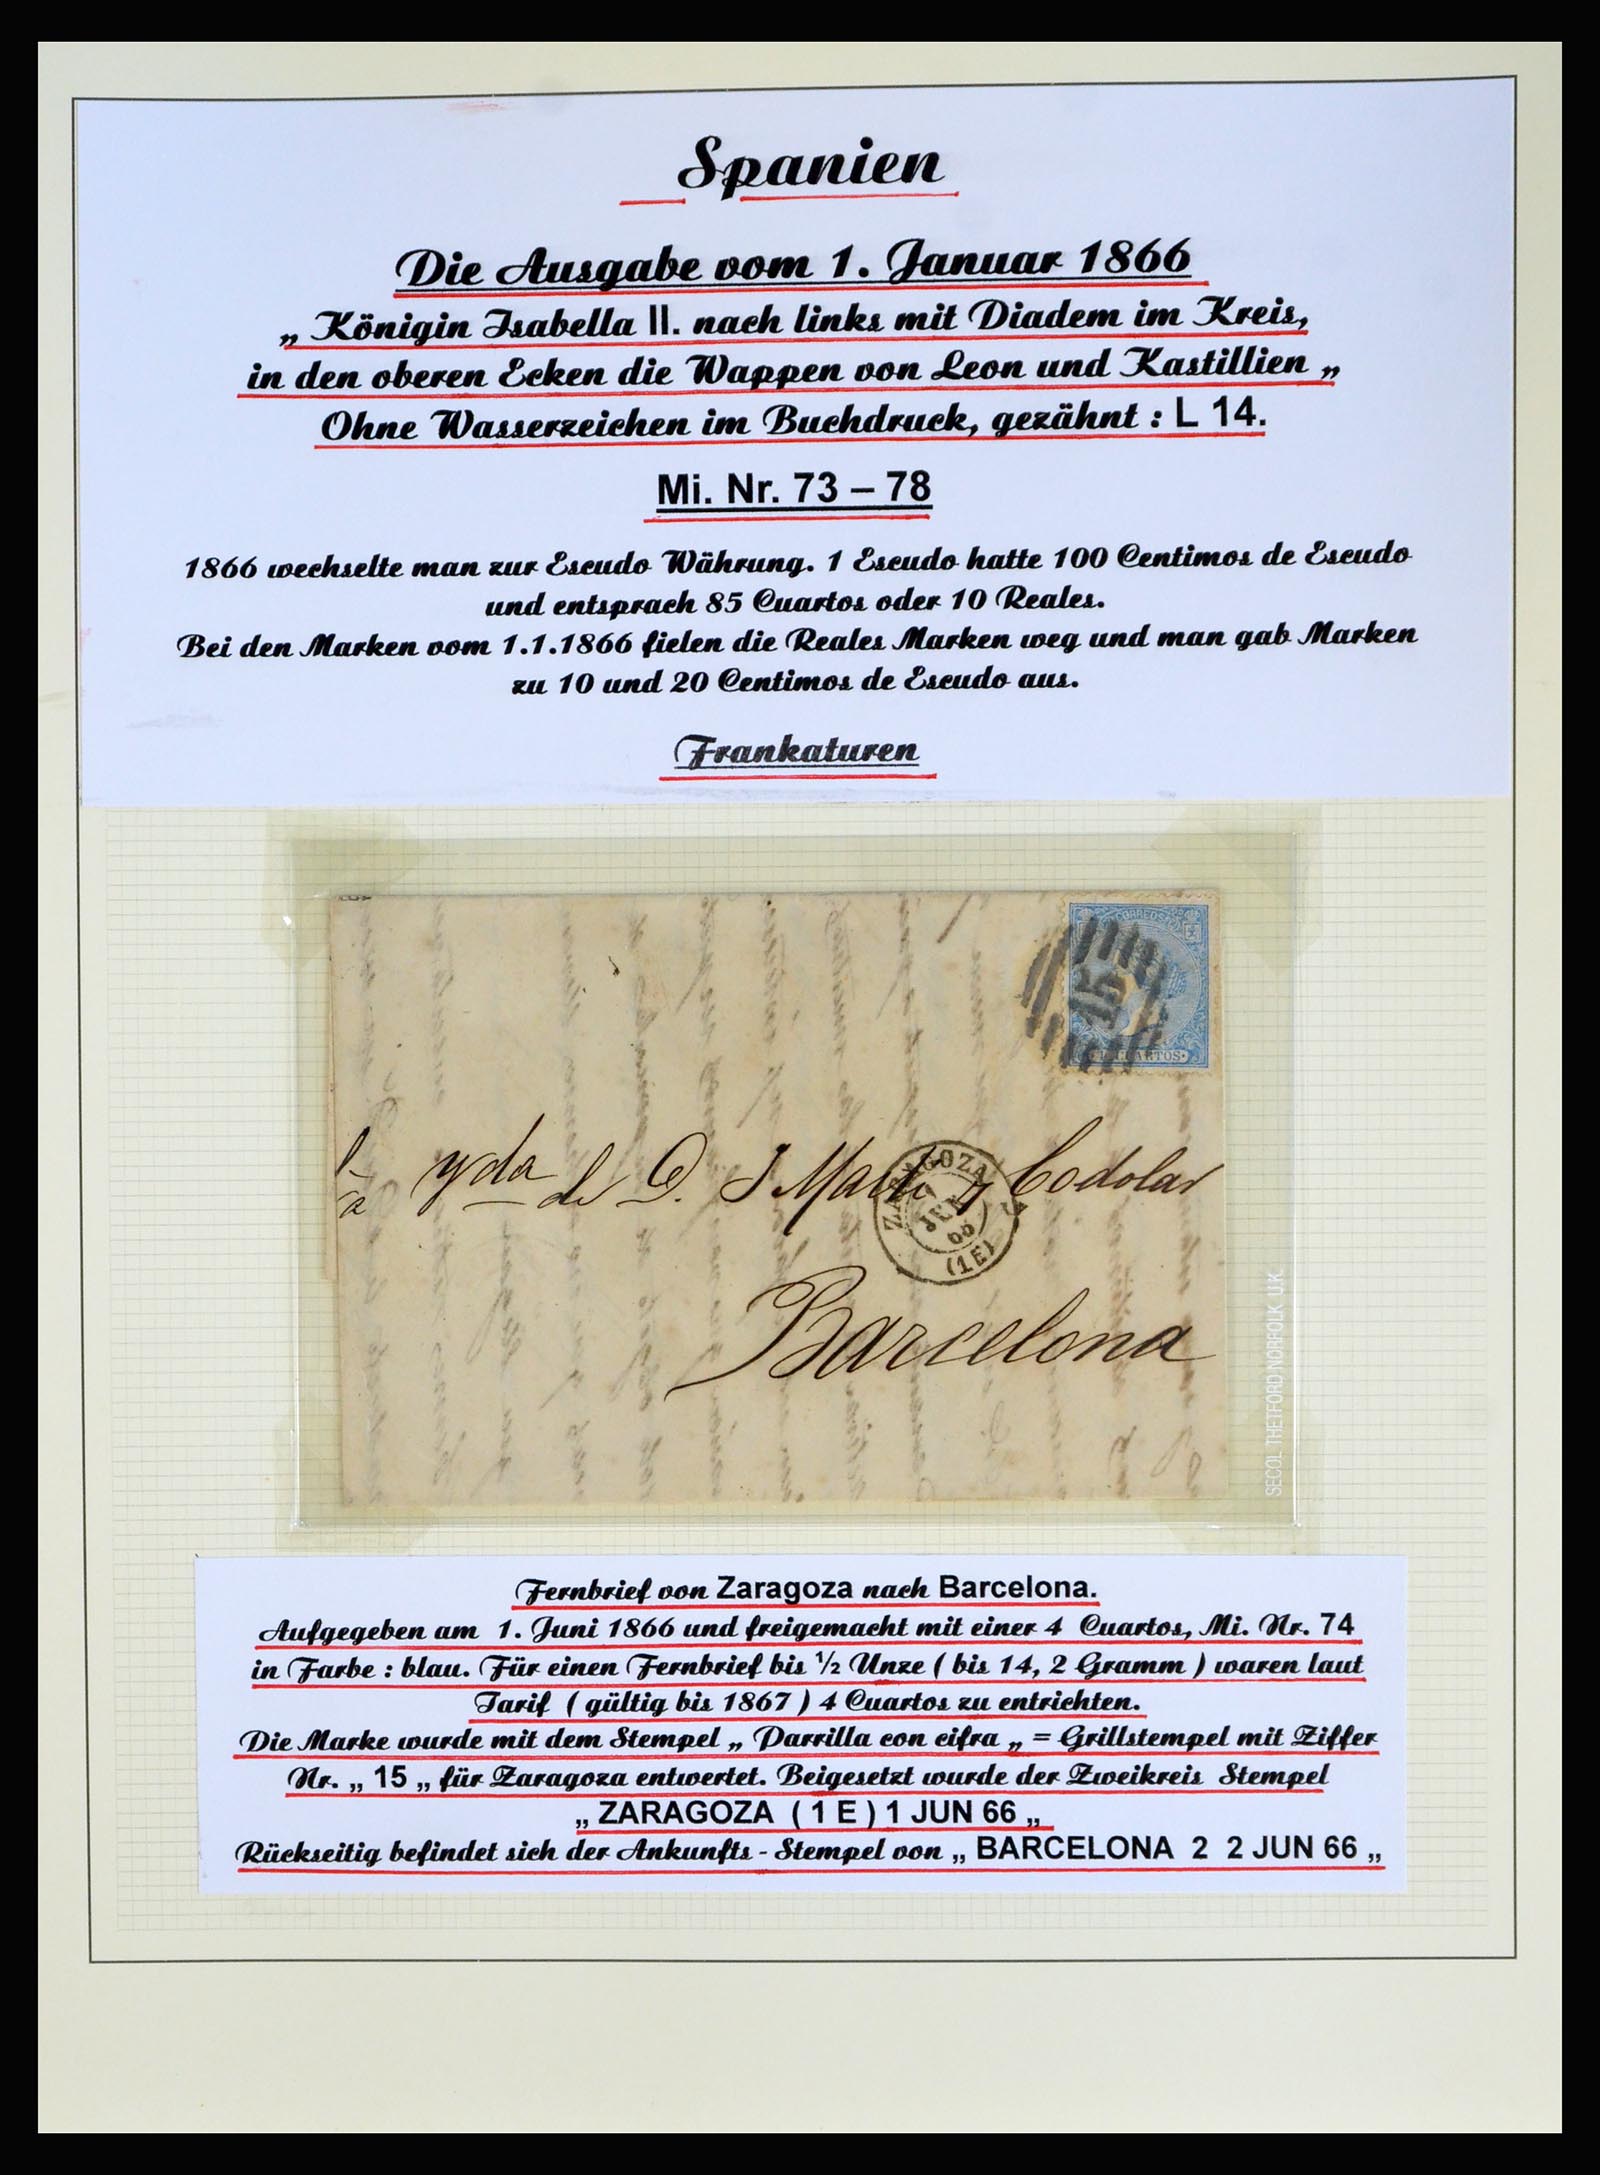 Spanien
Die Ausgabe vom 1. Januar 1866
„ Königin Isabella II. nach links mit Diadem im Kreis,
in den oberen Ecken die Wappen von Leon und Kastillien „
Ohne Wasserzeichen im Buchdruck, gezähnt : L 14.
Mi. Nr. 73 – 78
1866 wechselte man zur Escudo Währung. 1 Escudo hatte 100 Centimos de Escudo
und entsprach 85 Cuartos oder 10 Reales.
Bei den Marken vom 1.1.1866 fielen die Reales Marken weg und man gab Marken
zu 10 und 20 Centimos de Escudo aus.
Frankaturen
CORREOS
15
CUARTOS
yda de D. J Marti y Codolar
ZARAGOZA
1
JUN
66
(1E)
Barcelona
SECOL THETFORD NORFOLK U.K.
Fernbrief von Zaragoza nach Barcelona.
Aufgegeben am 1. Juni 1866 und freigemacht mit einer 4 Cuartos, Mi. Nr. 74
in Farbe : blau. Für einen Fernbrief bis ½ Unze ( bis 14, 2 Gramm ) waren laut
Tarif ( gültig bis 1867 ) 4 Cuartos zu entrichten.
Die Marke wurde mit dem Stempel „ Parrilla con cifra „ = Grillstempel mit Ziffer
Nr. „ 15 „ für Zaragoza entwertet. Beigesetzt wurde der Zweikreis Stempel
„ ZARAGOZA ( 1 E ) 1 JUN 66 „
Rückseitig befindet sich der Ankunfts - Stempel von „ BARCELONA 2 2 JUN 66 „